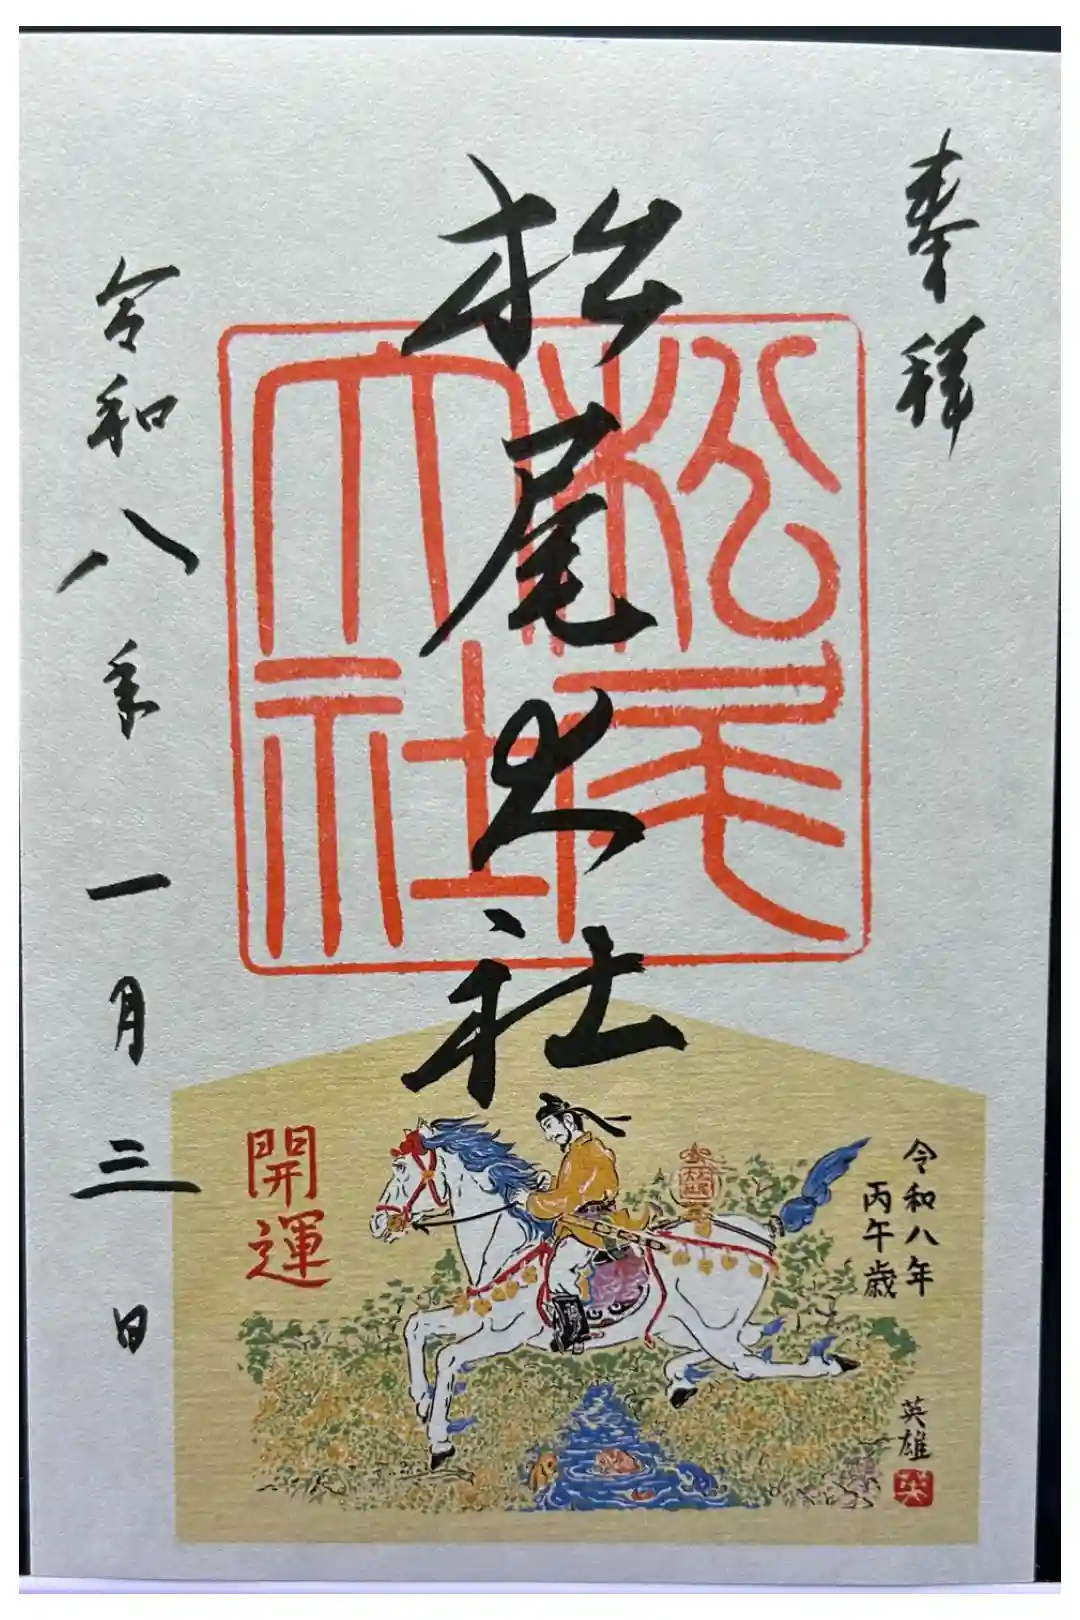 奉拝
松尾大社
松尾
大社
令和八年一月三日
令和八年
丙午歳
開運
英雄